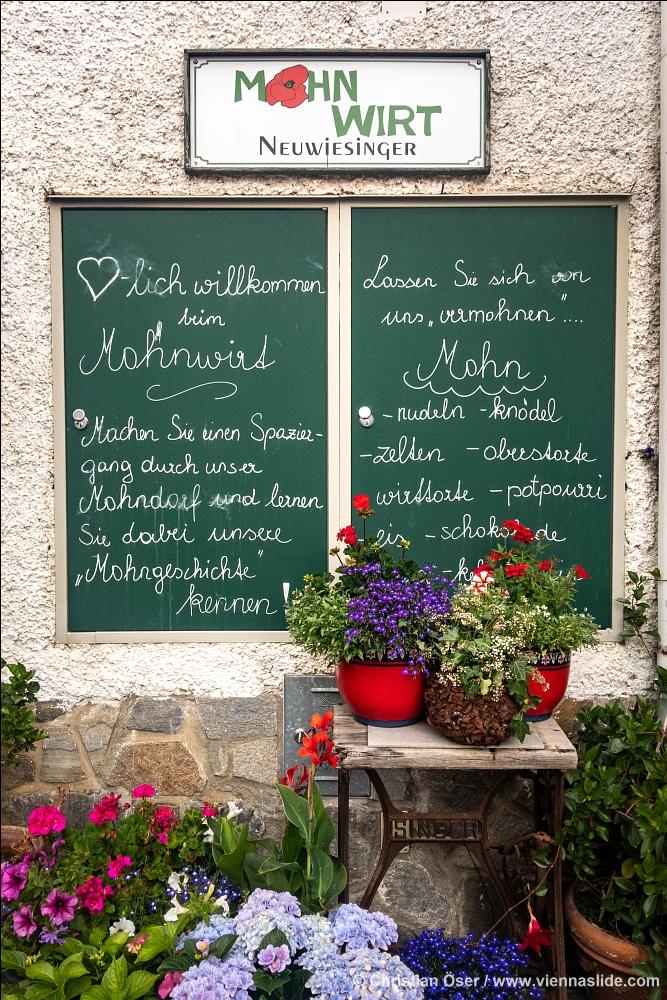 MOHN
WIRT
NEUWIESINGER
♡-lich willkommen
beim
Mohnwirt
Machen Sie einen Spazier-
gang durch unser
Mohndorf und lernen
Sie dabei unsere
„Mohngeschichte"
kennen!
Lassen Sie sich von
uns „vermohnen"....
Mohn
-nudeln -knödel
-zelten -oberstorte
-wirttorte -potpourri
eis -
SINGER
© Christian Oser / www.viennaslide.com